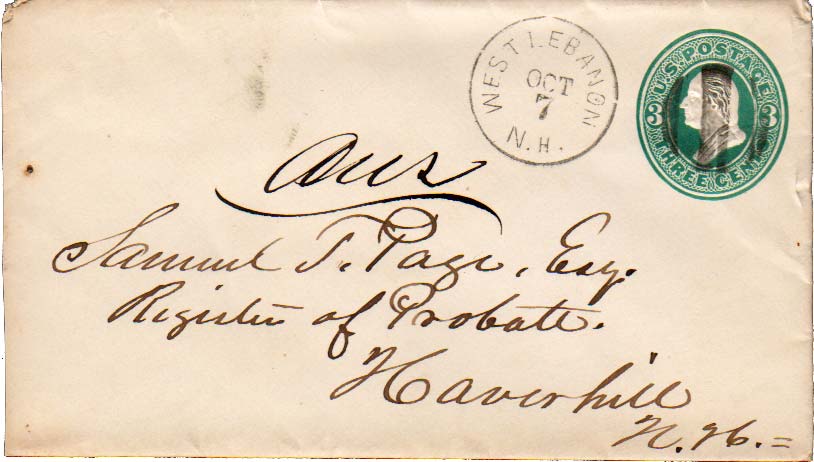 WEST LEBANON
OCT
7
N.H.
U.S. POSTAGE
3 3
THREE CENTS
Ans
Samuel T. Page, Esq.
Register of Probate.
Haverhill
N.H.=